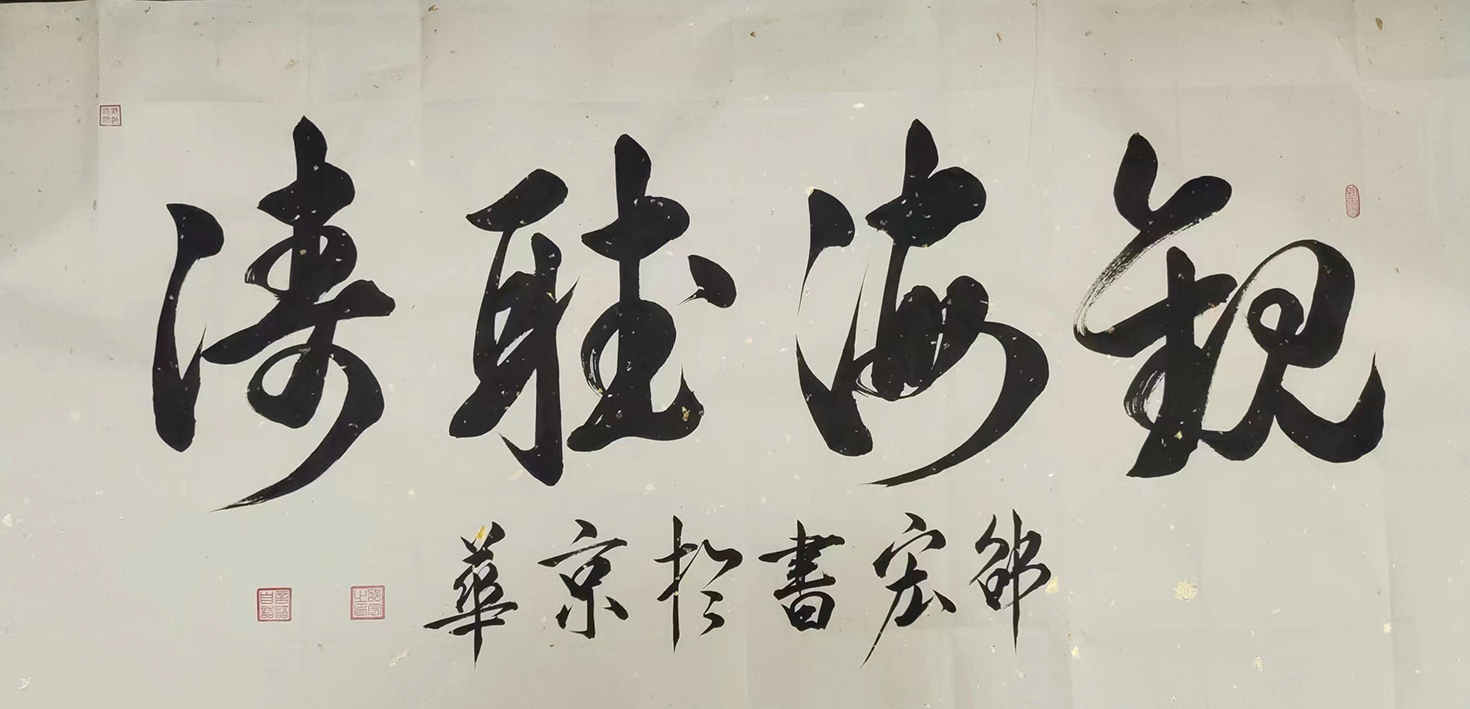 觀海聽濤
邵宏書於京華